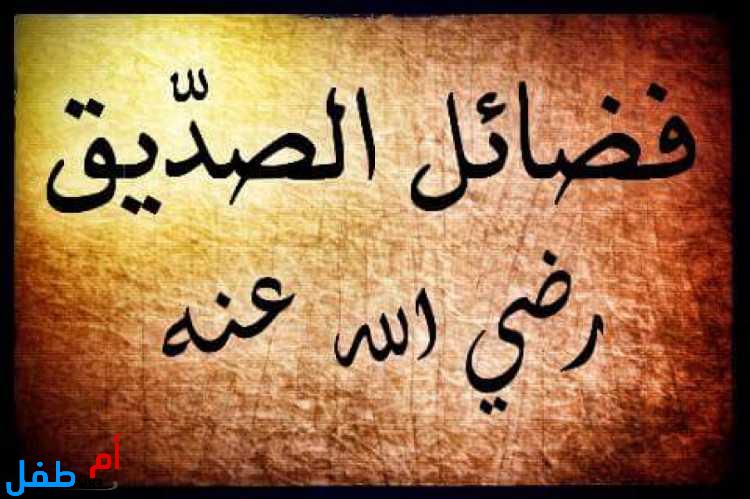 فضائل الصدّيق
رضي الله عنه
أم
طفل